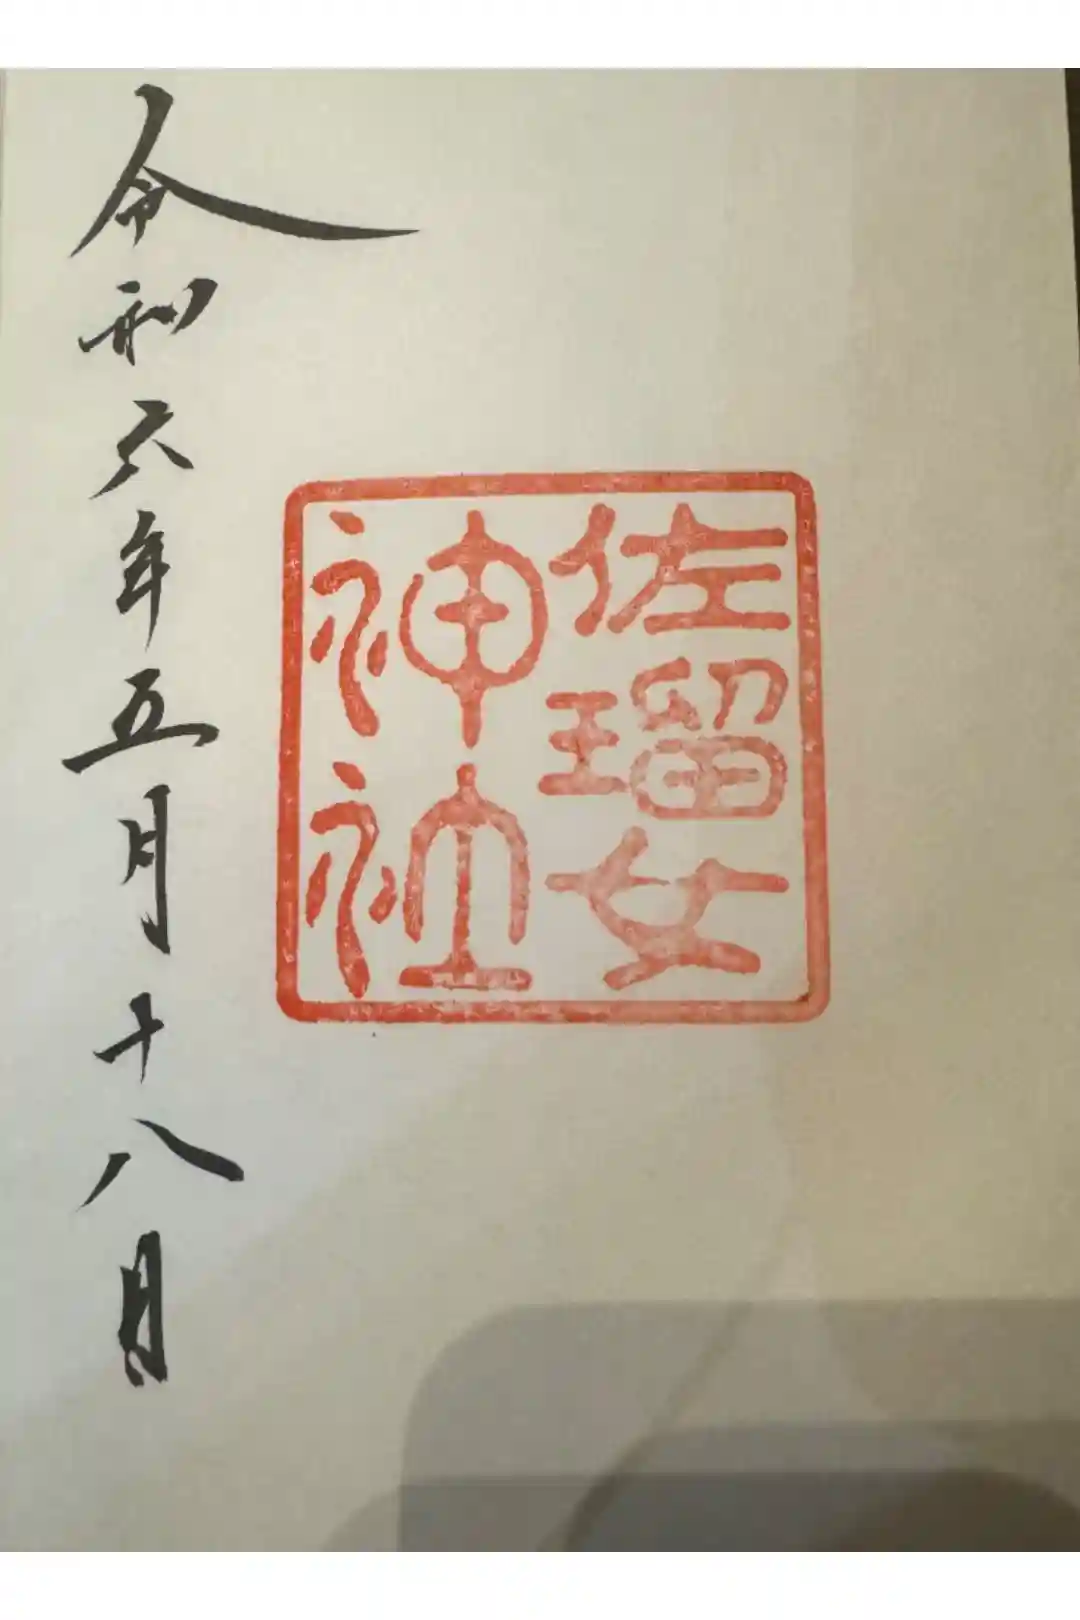 佐瑠女
神社
令和六年五月十八日